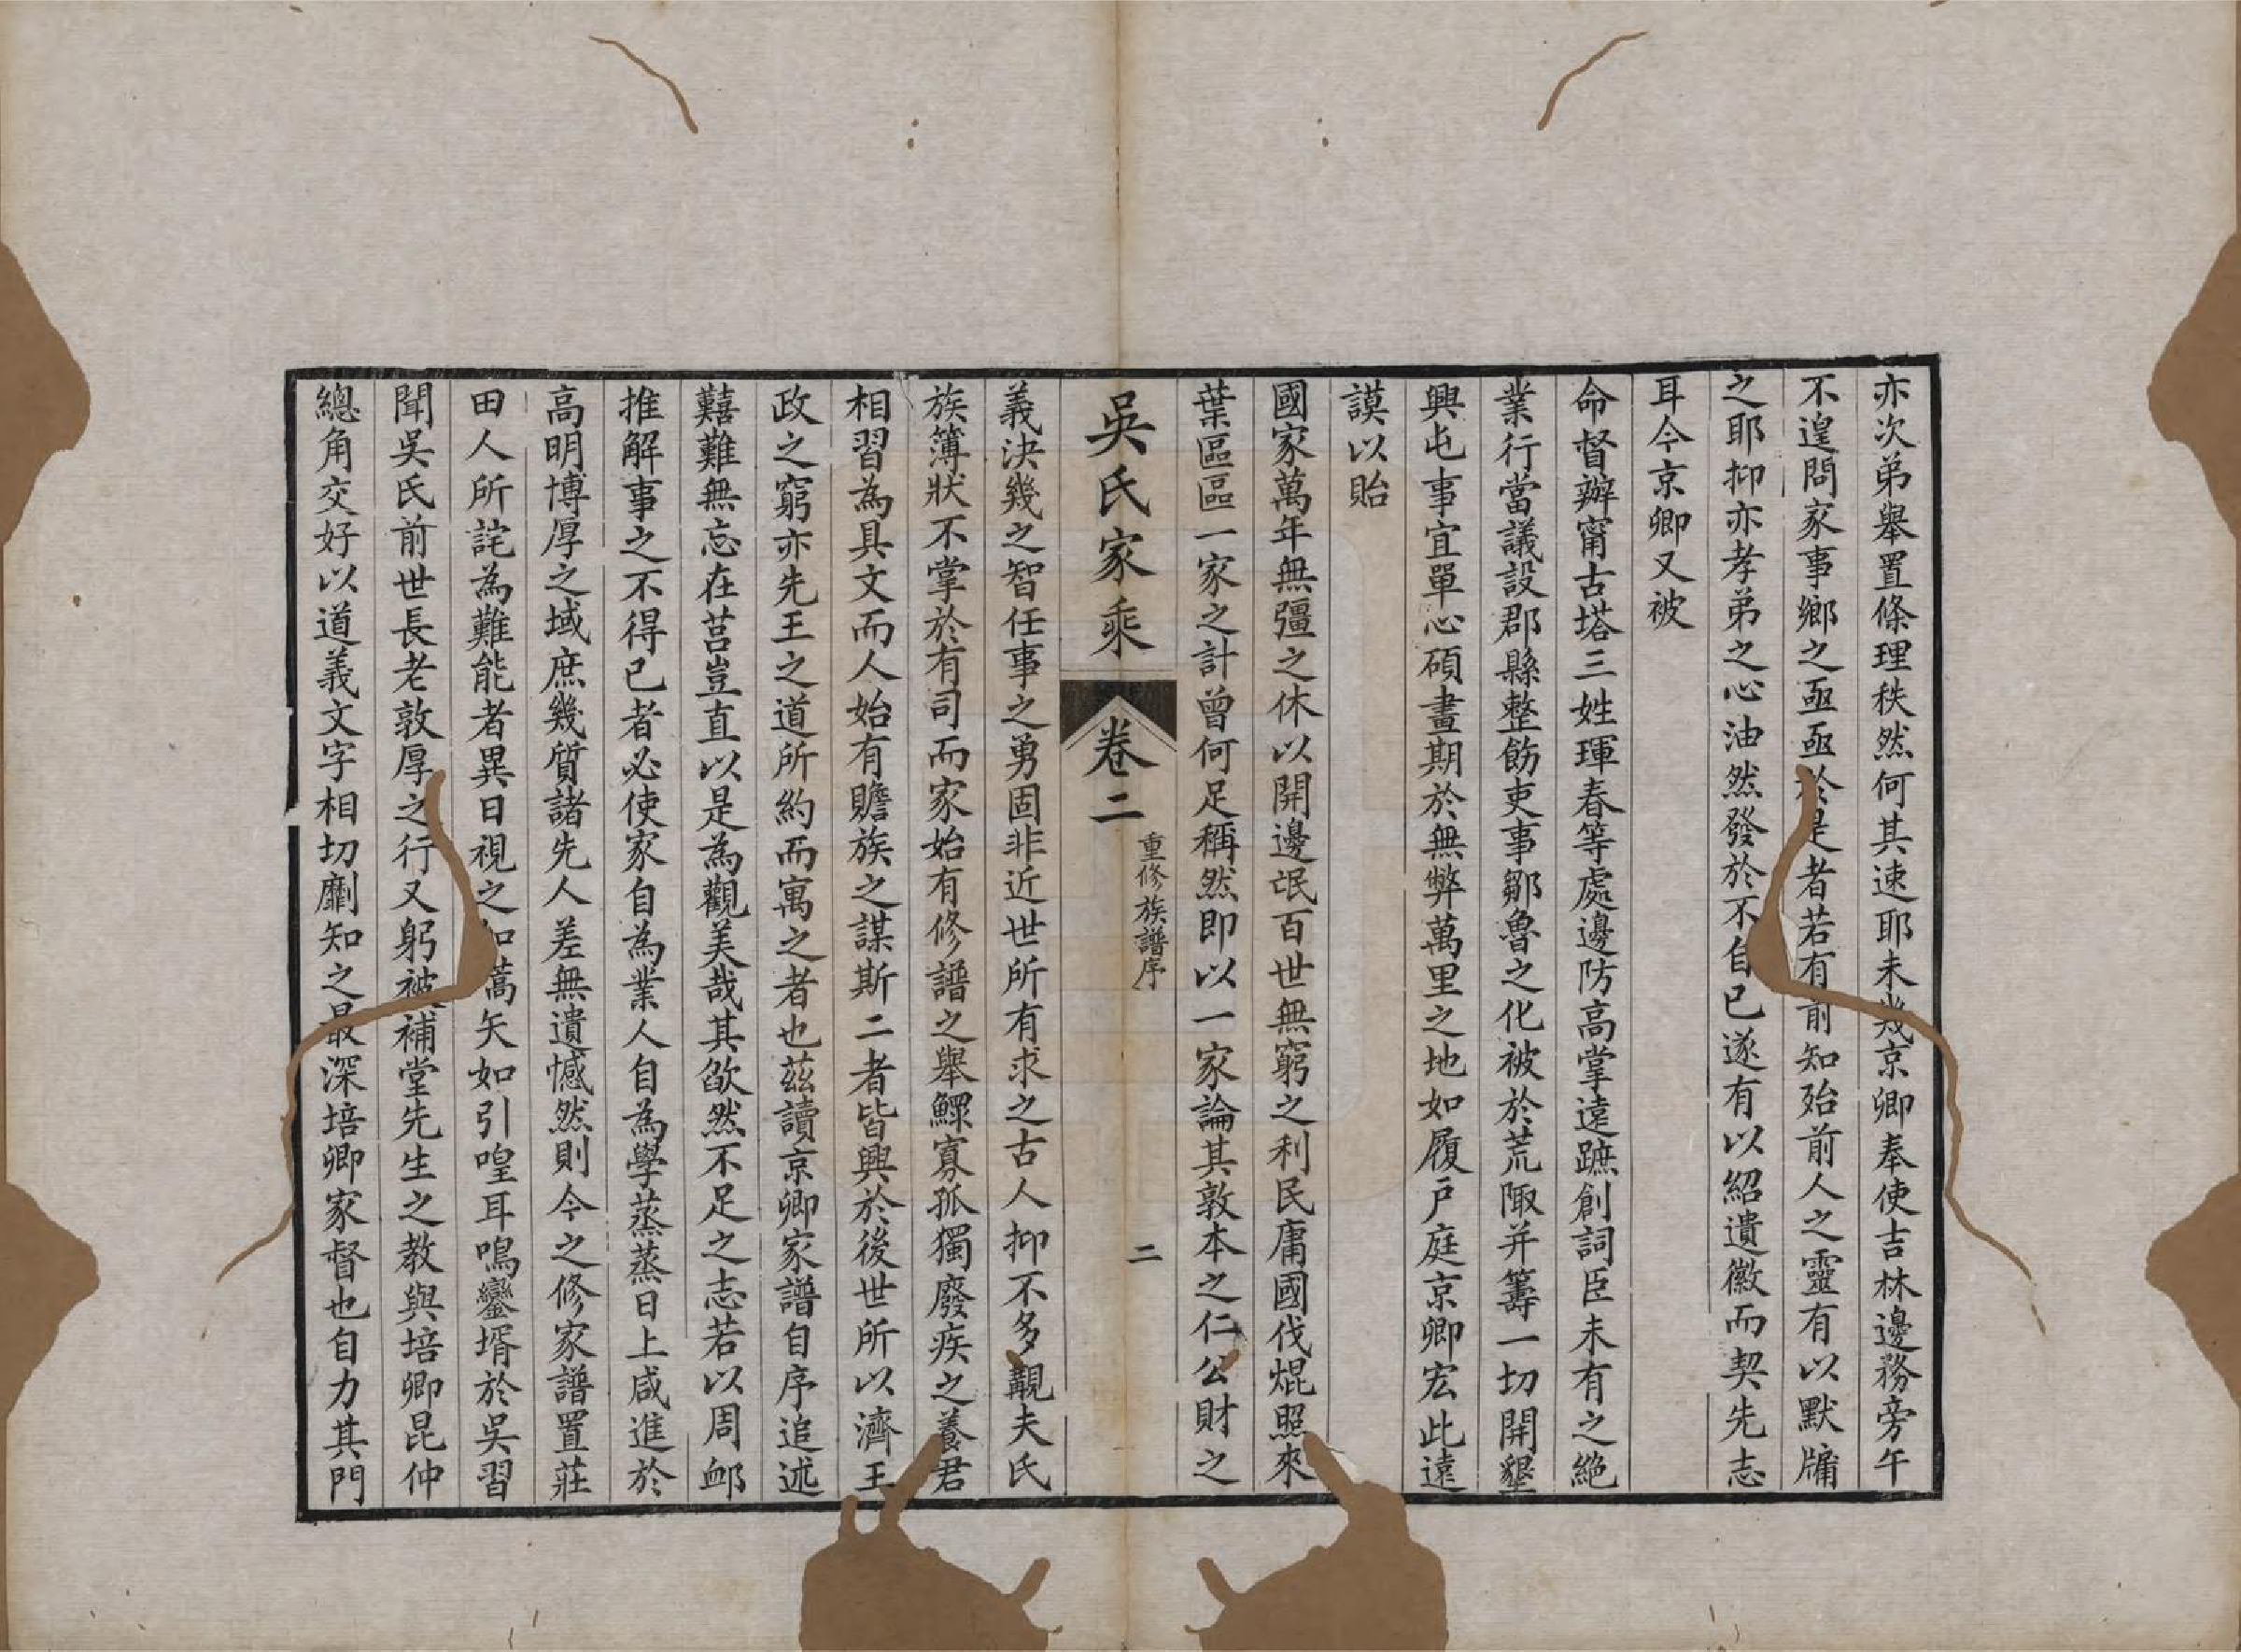 亦次弟舉置條理秩然何其速耶未幾京卿奉使吉林邊務旁午
不遑問家事鄉之亟亟於是者若有前知殆前人之靈有以默牖
之耶抑亦孝弟之心油然發於不自已遂有以紹遺徽而契先志
耳今京卿又被
命督辦甯古塔三姓琿春等處邊防高掌遠蹠創詞臣未有之絕
業行當議設郡縣整飭吏事鄒魯之化被於荒陬并籌一切開墾
興屯事宜單心碩畫期於無弊萬里之地如履戶庭京卿宏此遠
謨以貽
國家萬年無疆之休以開邊氓百世無窮之利民庸國伐焜照來
葉區區一家之計曾何足稱然即以一家論其敦本之仁公財之
吳氏家乘
卷二
重修族譜序
二
義決幾之智任事之勇固非近世所有求之古人抑不多覯夫氏
族簿狀不掌於有司而家始有修譜之舉鰥寡孤獨廢疾之養君
相習為具文而人始有贍族之謀斯二者皆興於後世所以濟王
政之窮亦先王之道所約而寓之者也茲讀京卿家譜自序追述
囏難無忘在莒豈直以是為觀美哉其欿然不足之志若以周卹
推解事之不得已者必使家自為業人自為學蒸蒸日上咸進於
高明博厚之域庶幾質諸先人差無遺憾然則今之修家譜置莊
田人所詫為難能者異日視之如蒿矢如引喤耳鳴鑾壻於吳習
聞吳氏前世長老敦厚之行又躬被補堂先生之教與培卿昆仲
總角交好以道義文字相切劘知之最深培卿家督也自力其門